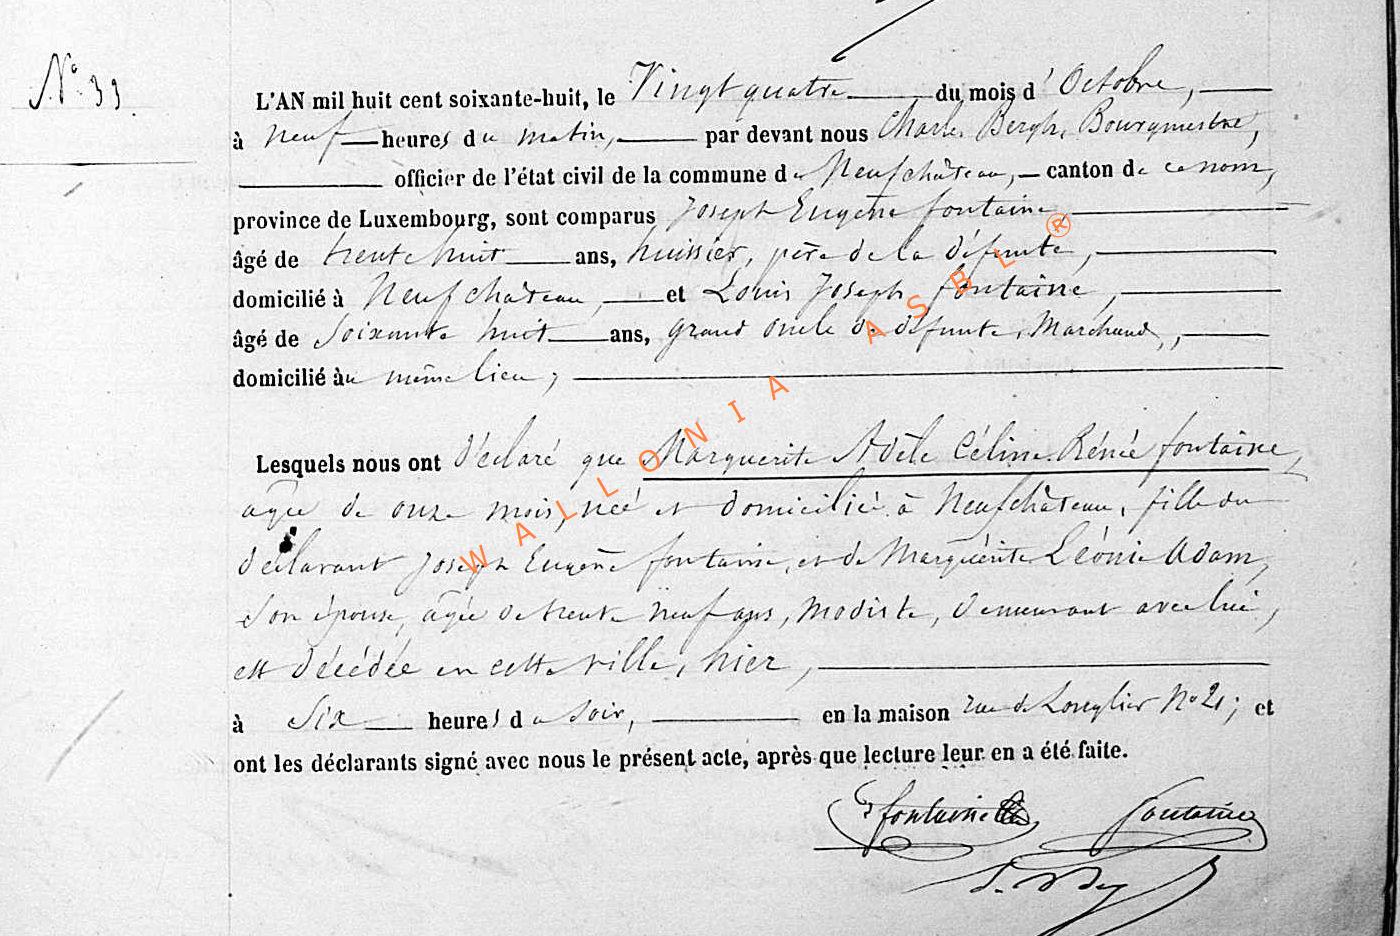 N° 39.
L'AN mil huit cent soixante-huit, le Vingt quatre du mois d'Octobre,
à neuf heures du matin, par devant nous Charles Bergh, Bourgmestre,
officier de l'état civil de la commune de Neufchâteau, canton de ce nom,
province de Luxembourg, sont comparus Joseph Eugène fontaine,
âgé de trente huit ans, huissier, père de la défunte,
domicilié à Neufchâteau, et Louis Joseph fontaine,
âgé de Soixante huit ans, grand oncle de défunte, Marchand,
domicilié au même lieu;
Lesquels nous ont déclaré que Marguerite Adèle Céline Rénée fontaine,
agée de onze mois, née et domiciliée à Neufchâteau, fille du
déclarant Joseph Eugène fontaine, et de Marguérite Léonie Adam,
Son épouse, agée de trente neuf ans, modiste, demeurant avec lui,
est décédée en cette ville, hier,
à Six heures du soir, en la maison rue de Longlier N° 21; et
ont les déclarants signé avec nous le présent acte, après que lecture leur en a été faite.
fontaine fontaine
WALLONIA ASBL ®